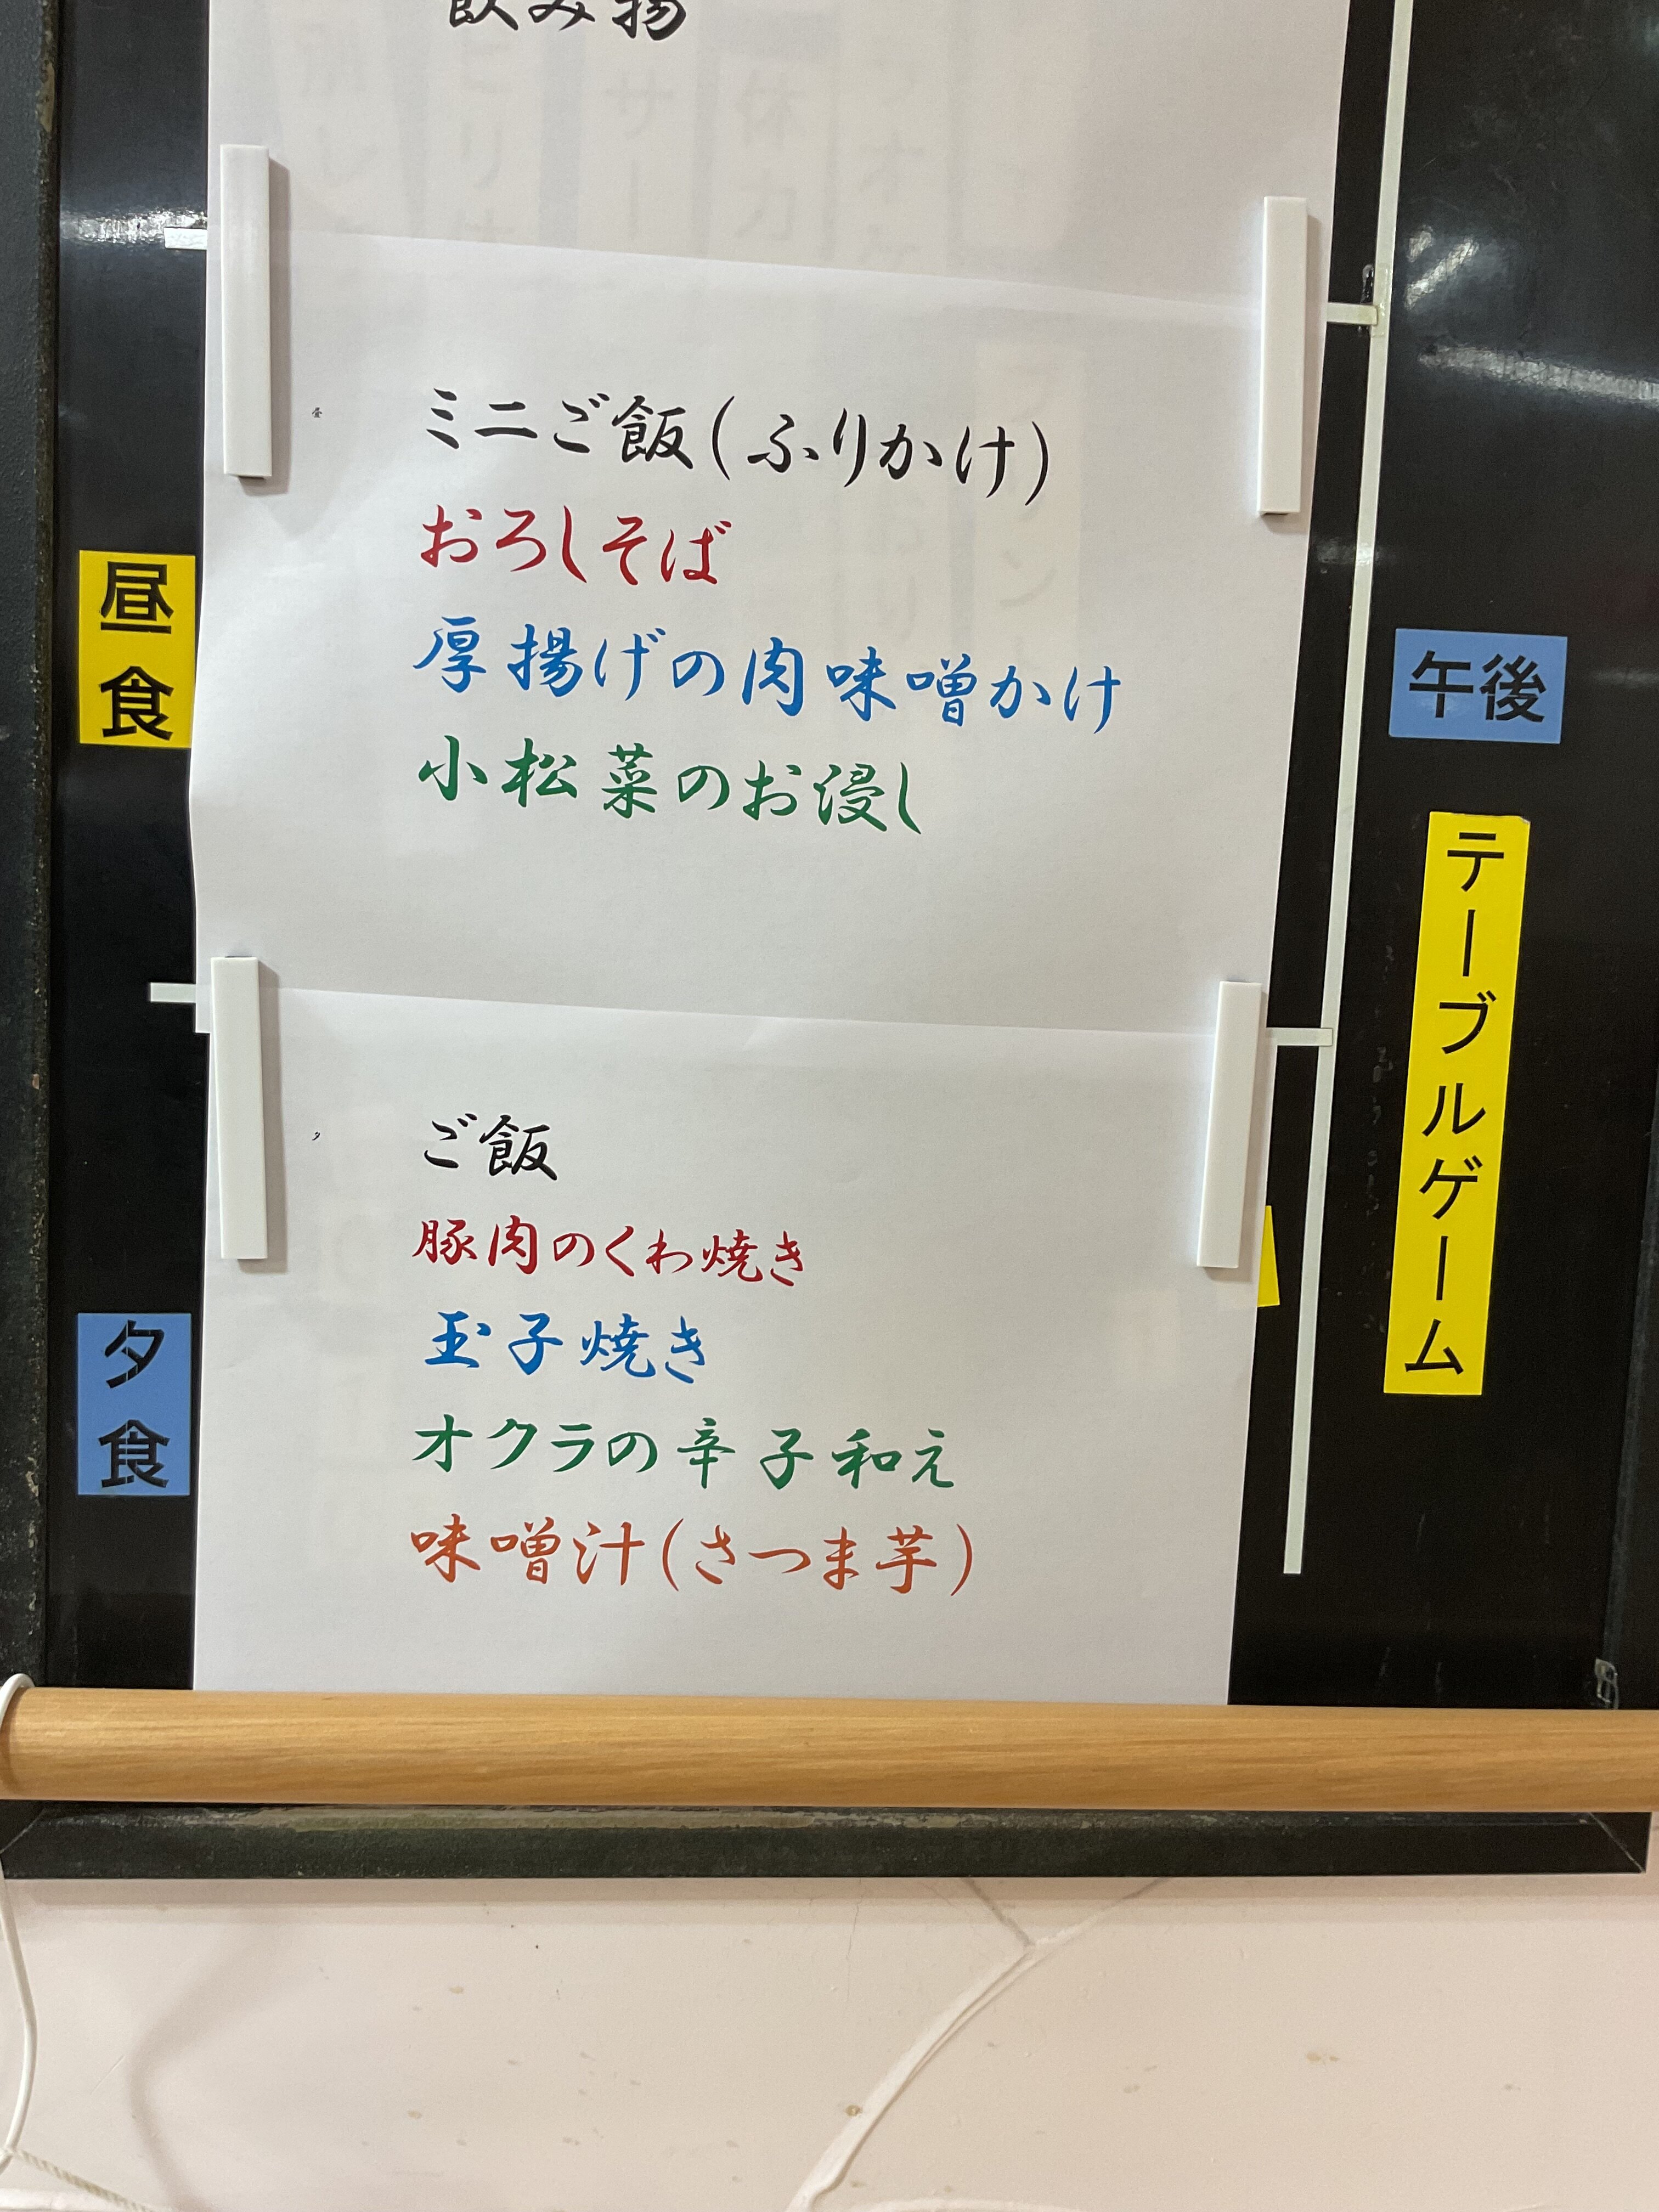 飲み物
昼
ミニご飯(ふりかけ)
おろしそば
厚揚げの肉味噌かけ
小松菜のお浸し
昼食
夕
ご飯
豚肉のくわ焼き
玉子焼き
オクラの辛子和え
味噌汁(さつま芋)
夕食
午後
テーブルゲーム